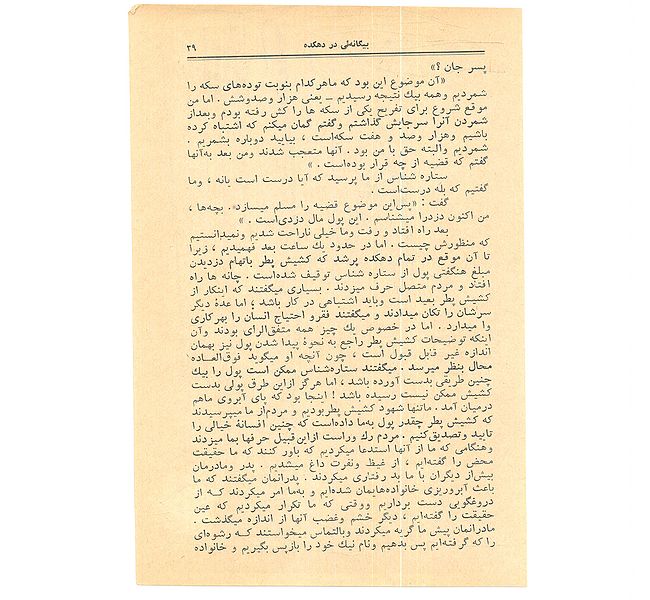 بیگانه‌ئی در دهکده
۳۹
پسر جان ؟»
«آن موضوع این بود که ماهرکدام بنوبت توده‌های سکه را
شمردیم وهمه بیك نتیجه رسیدیم ــ یعنی هزار وصدوشش . اما من
موقع شروع برای تفریح یکی از سکه ها را کش رفته بودم وبعداز
شمردن آنرا سرجایش گذاشتم وگفتم گمان میکنم که اشتباه کرده
باشیم وهزار وصد و هفت سکه‌است ، بیایید دوباره بشمریم .
شمردیم والبته حق با من بود . آنها متعجب شدند ومن بعد به‌آنها
گفتم که قضیه از چه قرار بوده‌است . »
ستاره شناس از ما پرسید که آیا درست است یانه ، وما
گفتیم که بله درست‌است .
گفت : «پس‌این موضوع قضیه را مسلم میسازد. بچه‌ها ،
من اکنون دزدرا میشناسم . این پول مال دزدی‌است . »
بعد راه افتاد و رفت وما خیلی ناراحت شدیم ونمیدانستیم
که منظورش چیست . اما در حدود یك ساعت بعد فهمیدیم ، زیرا
تا آن موقع در تمام دهکده پرشد که کشیش پطر باتهام دزدیدن
مبلغ هنگفتی پول از ستاره شناس توقیف شده‌است . چانه ها راه
افتاد و مردم متصل حرف میزدند . بسیاری میگفتند که اینکار از
کشیش پطر بعید است وباید اشتباهی در کار باشد ؛ اما عدهٔ دیگر
سرشان را تکان میدادند و میگفتند فقرو احتیاج انسان را بهرکاری
وا میدارد . اما در خصوص یك چیز همه متفق‌الرای بودند وآن
اینکه توضیحات کشیش پطر راجع به نحوهٔ پیدا شدن پول نیز بهمان
اندازه غیر قابل قبول است ، چون آنچه او میگوید فوق‌العـاده
محال بنظر میرسد . میگفتند ستاره‌شناس ممکن است پول را بیك
چنین طریقی بدست آورده باشد ، اما هرگز ازاین طرق پولی بدست
کشیش ممکن نیست رسیده باشد ! اینجا بود که پای آبروی ماهم
درمیان آمد . ماتنها شهود کشیش پطربودیم و مردم‌از ما میپرسیدند
که کشیش پطر چقدر پول به‌ما داده‌است که چنین افسانهٔ خیالی را
تایید وتصدیق‌کنیم . مردم رك وراست ازاین‌قبیل حرفها بما میزدند
وهنگامی که ما از آنها استدعا میکردیم که باور کنند که ما حقیقت
محض را گفته‌ایم ، از غیظ ونفرت داغ میشدیم . پدر ومادرمان
بیش‌از دیگران با ما بد رفتاری میکردند . پدرانمان میگفتند که ما
باعث آبروریزی خانواده‌هایمان شده‌ایم و به‌ما امر میکردند کـه از
دروغگویی دست برداریم ووقتی که ما تکرار میکردیم که عین
حقیقت را گفته‌ایم ، دیگر خشم وغضب آنها از اندازه میگذشت .
مادرانمان پیش ما گریه میکردند وبالتماس میخواستند کـه رشوه‌ای
را که گرفته‌ایم پس بدهیم ونام نیك خود را بازپس بگیریم و خانواده